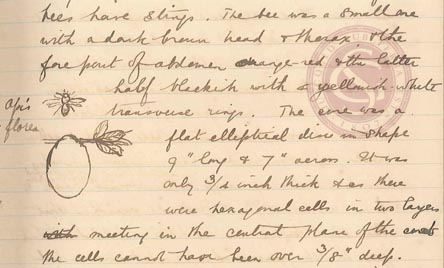 bees have stings. The bee was a small one
with a dark brown head & thorax & the
fore part of abdomen orange-red & the latter
half blackish with yellowish-white
transverse rings. The cone was a
Apis
florea
flat elliptical disc in shape
9" long & 7" across. It was
only 3/4 inch thick & as there
were hexagonal cells in two layers
with meeting in the central plane of the comb
the cells cannot have been over 3/8" deep.